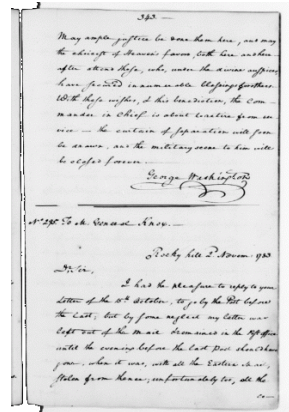 343.
May ample justice be done them here, and may
the choicest of Heaven's favors, both here and here-
after attend those, who, under the divine auspices
have secured innumerable blessings for others.
With these wishes, & this benediction, the Com-
mander in Chief is about to retire from ser-
vice — the curtain of separation will soon
be drawn, and the military scene to him will
be closed forever. —
George Washington
To M. General Knox. —
Rocky hill 2d Novem. 1783
Dr Sir,
I had the pleasure to reply to your
Letter of the of October, to go by the Post before
the last; but by some neglect my letter was
left out of the Mail & remained in the Post office
until the evening before the last Post should have
gone, when it was, with all the Eastern Mail,
stolen from thence; unfortunately too, all the